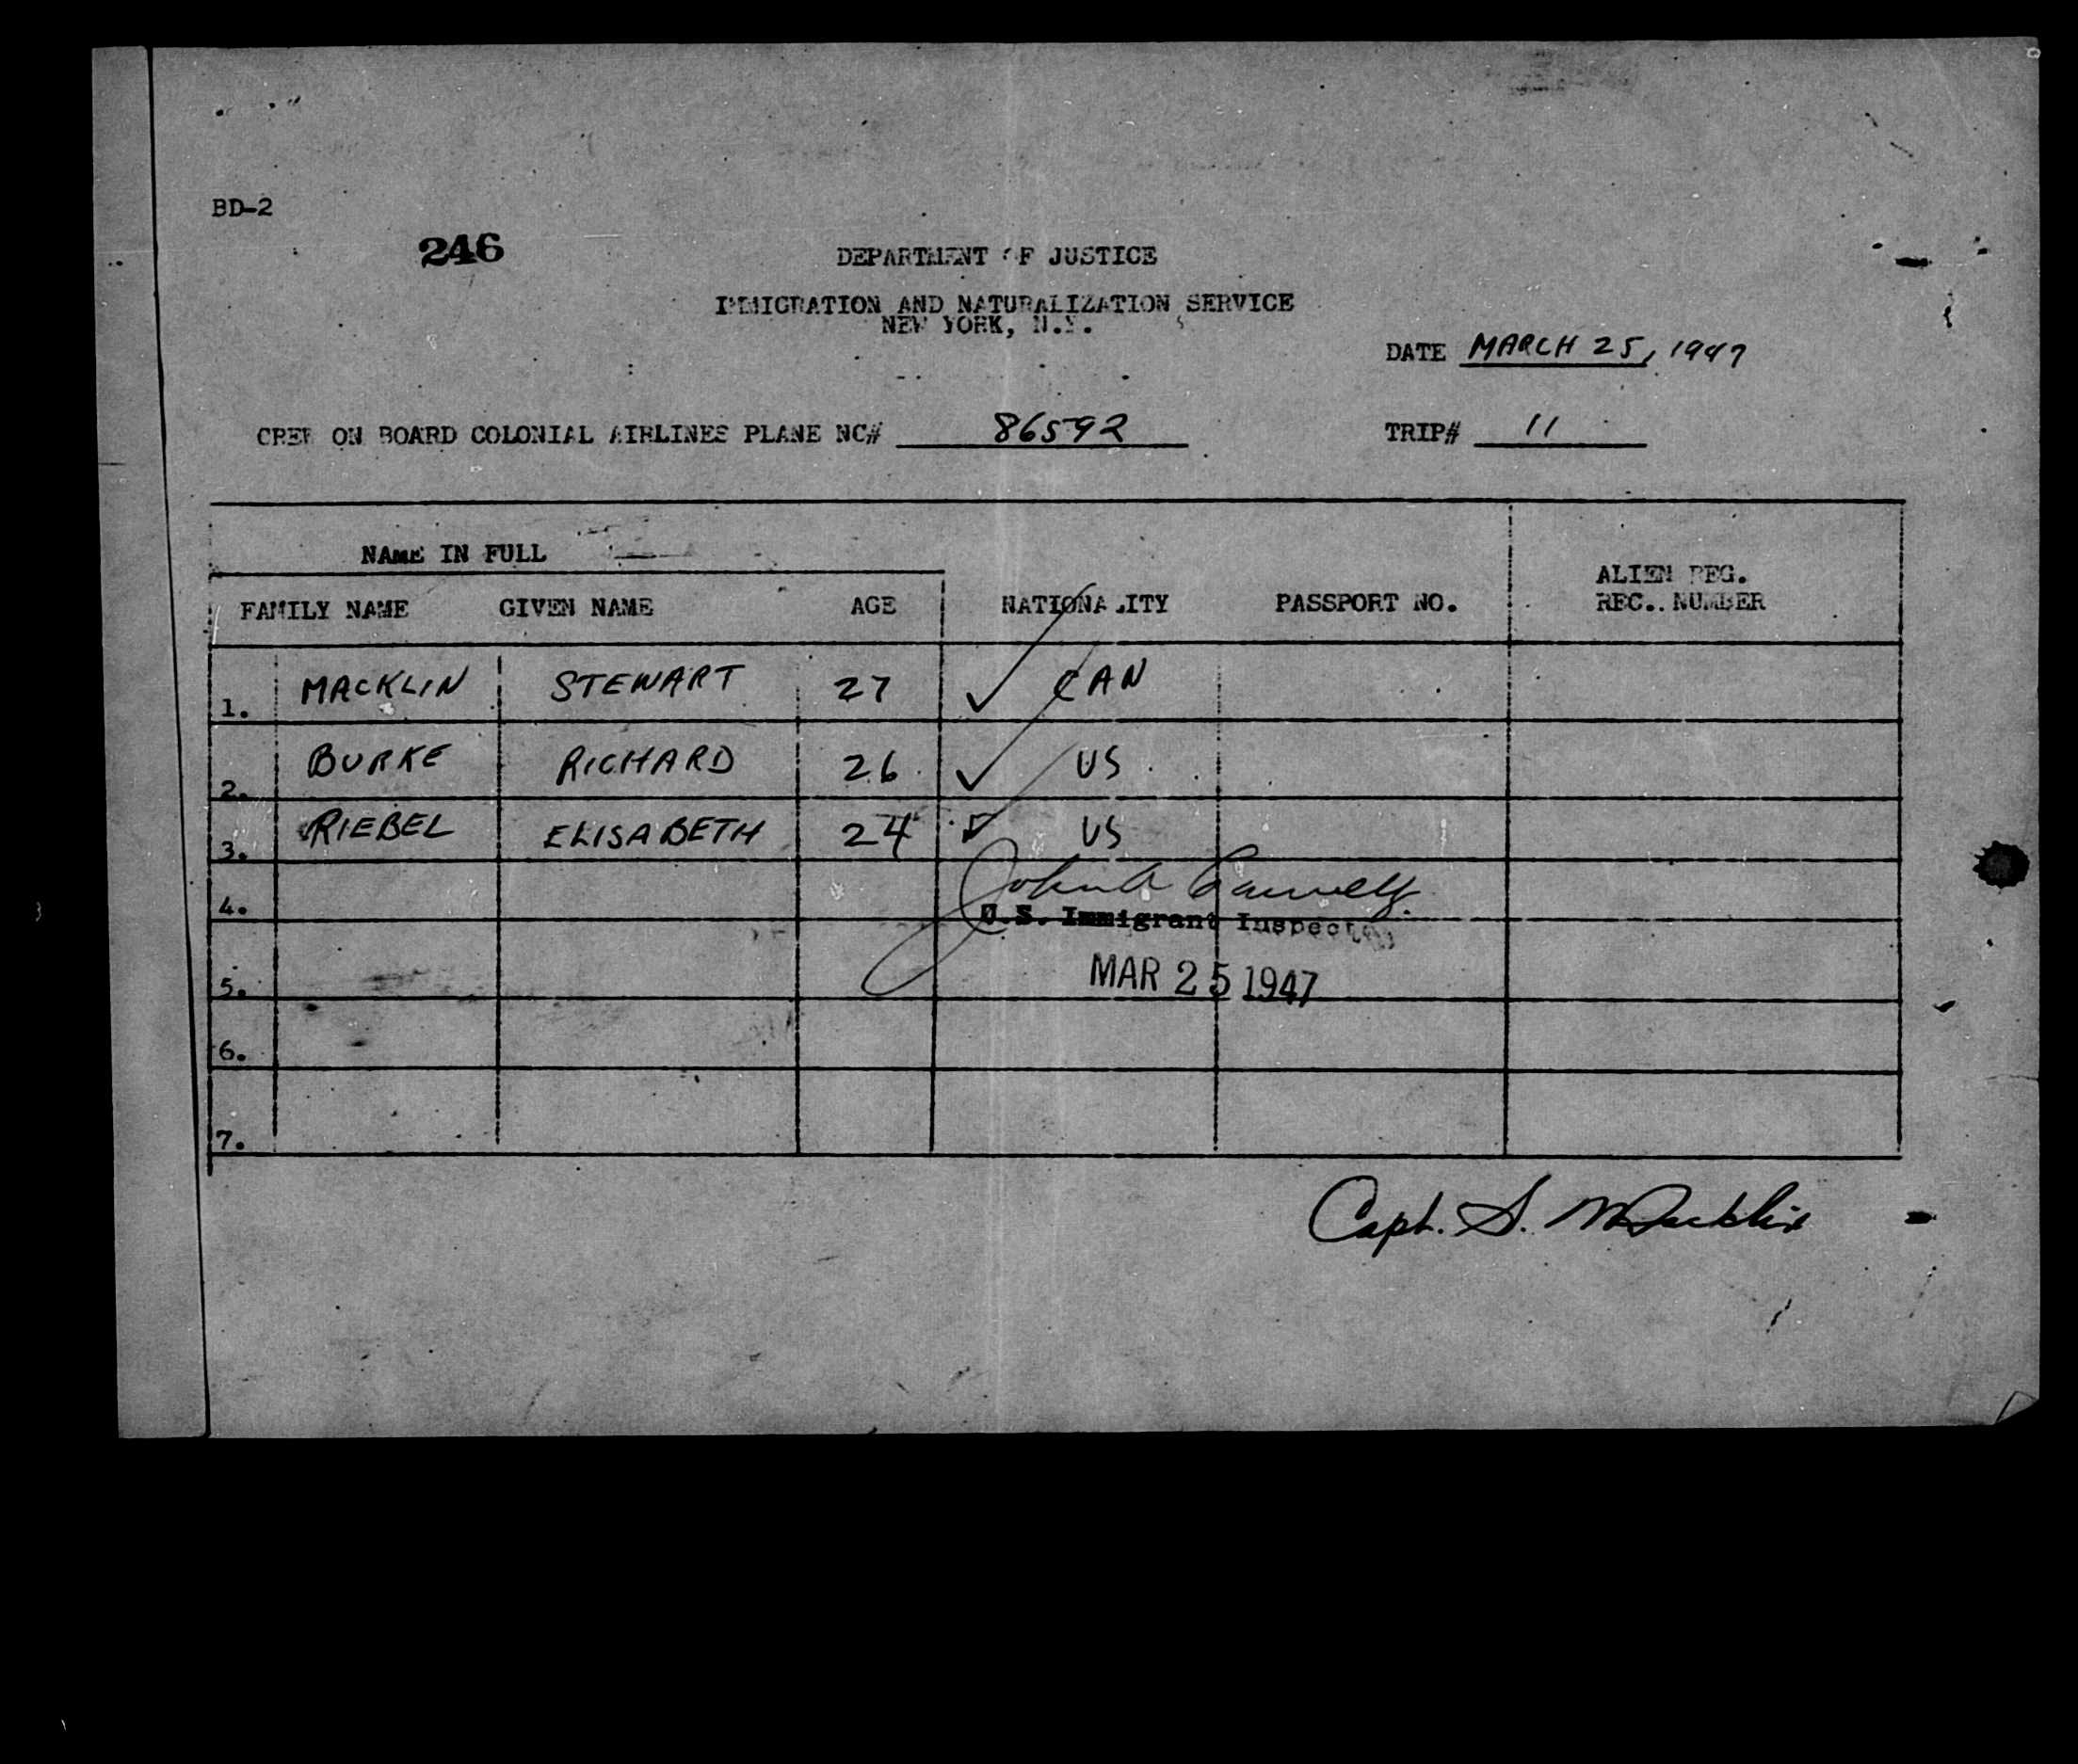 BD-2
246
DEPARTMENT OF JUSTICE
IMMIGRATION AND NATURALIZATION SERVICE
NEW YORK, N.Y.
DATE MARCH 25, 1947
CREW ON BOARD COLONIAL AIRLINES PLANE NC# 86592 TRIP# 11
NAME IN FULL
FAMILY NAME GIVEN NAME AGE NATIONALITY PASSPORT NO. ALIEN REG. REC. NUMBER
1. MACKLIN STEWART 27 ✓ CAN
2. BURKE RICHARD 26 ✓ US
3. RIEBEL ELISABETH 24 ✓ US
4. John A
U.S. Immigrant Inspector
5. MAR 25 1947
6.
7.
Capt. S. Macklin